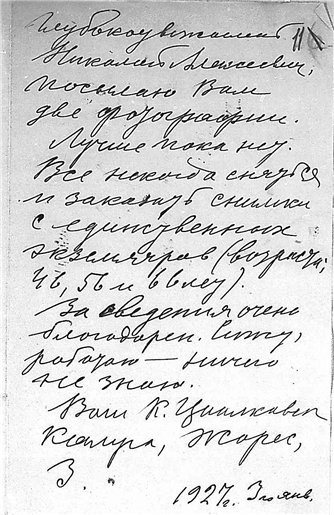 Глубокоуважаемый 11
Николай Алексеевич,
посылаю Вам
две фотографии.
Лучше пока нет.
Все некогда сняться
и заказать снимки
с единственных
экземпляров (возрасты:
46, 56 и 66 лет).
За сведения очень
благодарен. Сижу,
работаю — ничего
не знаю.
Ваш К. Циолковский
Калуга, Жорес,
3.
1927 г. 3го янв.